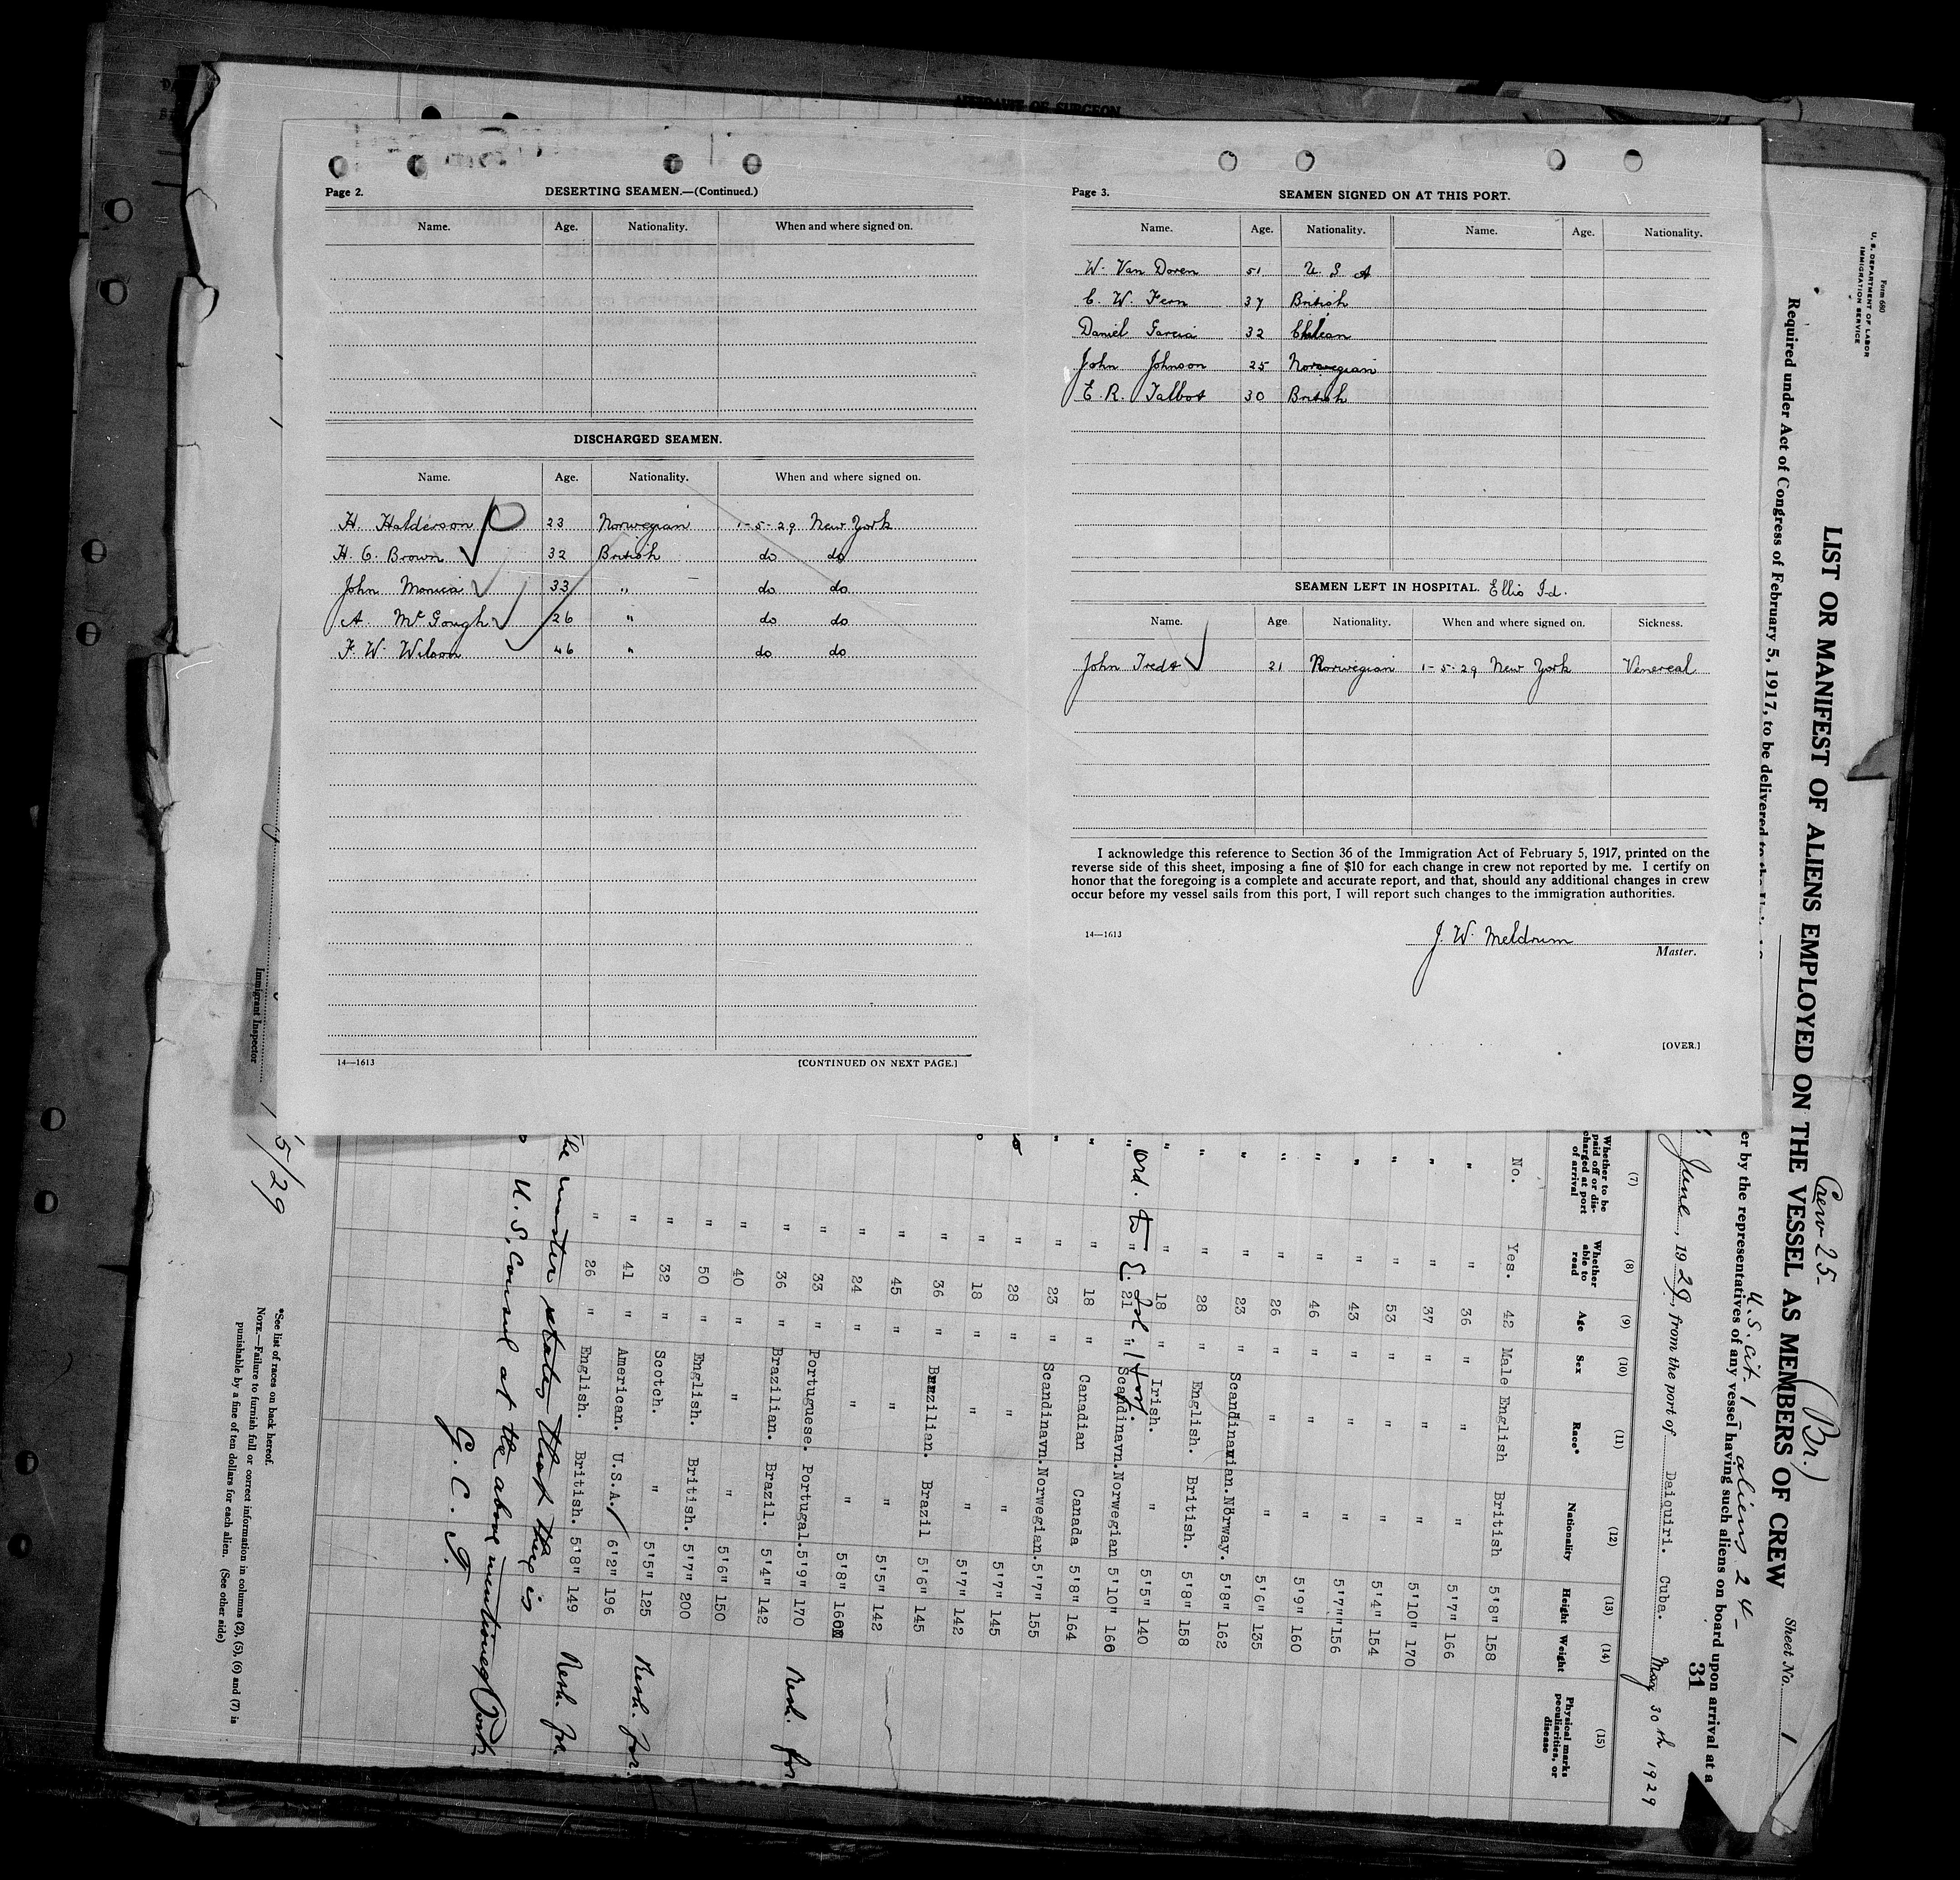 AFFIDAVIT OF SURGEON
Page 2.
DESERTING SEAMEN.—(Continued.)
Name. Age. Nationality. When and where signed on.
DISCHARGED SEAMEN.
Name. Age. Nationality. When and where signed on.
H. Halderson 23 Norwegian 1-5-29 New York
H. C. Brown 32 British do do
John Monica 33 " do do
A. McGough 26 " do do
F. W. Wilson 46 " do do
14—1613
[CONTINUED ON NEXT PAGE.]
Page 3.
SEAMEN SIGNED ON AT THIS PORT.
Name. Age. Nationality. Name. Age. Nationality.
W. Van Doren 51 U. S. A
C. W. Fern 37 British
Daniel Garcia 32 Chilean
John Johnson 25 Norwegian
E. R. Talbot 30 British
SEAMEN LEFT IN HOSPITAL. Ellis Id.
Name. Age Nationality. When and where signed on. Sickness.
John 21 Norwegian 1-5-29 New York Venereal
I acknowledge this reference to Section 36 of the Immigration Act of February 5, 1917, printed on the
reverse side of this sheet, imposing a fine of $10 for each change in crew not reported by me. I certify on
honor that the foregoing is a complete and accurate report, and that, should any additional changes in crew
occur before my vessel sails from this port, I will report such changes to the immigration authorities.
14—1613
J. W. Meldrum
Master.
[OVER.]
Form 680
U. S. DEPARTMENT OF LABOR
IMMIGRATION SERVICE
Crew 25- (Br.)
Sheet No. 1
LIST OR MANIFEST OF ALIENS EMPLOYED ON THE VESSEL AS MEMBERS OF CREW
U.S. cit. 1 aliens 24-
31
Required under Act of Congress of February 5, 1917, to be delivered to the
er by the representatives of any vessel having such aliens on board upon arrival at a
June, 1929, from the port of Daiquiri. Cuba. May 30th 1929
(7) (8) (9) (10) (11) (12) (13) (14) (15)
Whether to be paid off or discharged at port of arrival
Whether able to read
Age
Sex
Race*
Nationality
Height
Weight
Physical marks peculiarities, or disease
No. Yes. 42 Male English British 5'8" 158
" " 36 " " " 5'7" 166
" " 37 " " " 5'10" 170
" " 53 " " " 5'4" 154
" " 43 " " " 5'7" 156
" " 46 " " " 5'9" 160
" " 26 " " " 5'6" 135
" " 23 " Scandinavian. Norway. 5'8" 162
" " 28 " English. British. 5'8" 158
" " 18 " Irish. " 5'5" 140
" " 21 " Scandinavn. Norwegian 5'10" 160
" " 18 " Canadian Canada 5'8" 164
" " 23 " Scandinavn. Norwegian. 5'7" 155
" 28 " " " 5'7" 145
" 18 " " " 5'7" 142
" 36 " Brazilian. Brazil 5'6" 145
" 45 " " " 5'5" 142
" 24 " " " 5'8" 160
" 33 " Portuguese. Portugal. 5'9" 170
" 36 " Brazilian. Brazil. 5'4" 142
" 40 " " " 5'6" 150
" 50 " English. British. 5'7" 200
" 32 " Scotch. " 5'5" 125
" 41 " American. U.S.A. 6'2" 196
" 26 " English. British. 5'8" 149
The master states that there is
no U. S. Consul at the above mentioned Port
G. C. G.
*See list of races on back hereof.
NOTE.—Failure to furnish full or correct information in columns (2), (5), (6) and (7) is
punishable by a fine of ten dollars for each alien. (See other side)
Immigrant Inspector
5/29